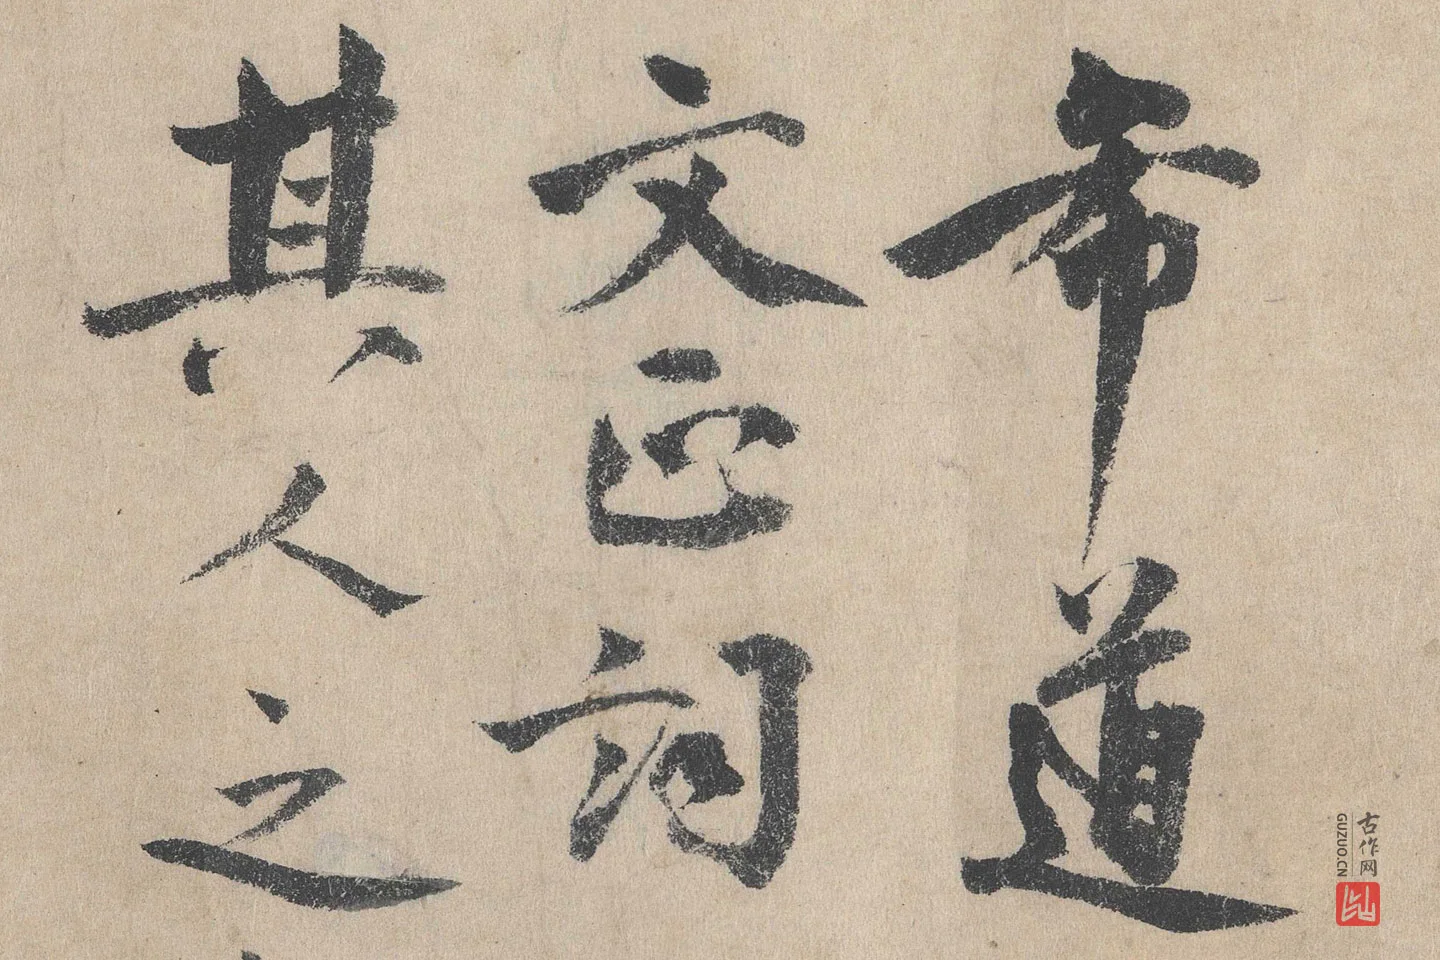 希道
文正詞
其人之
古作网
GUZUO.CN